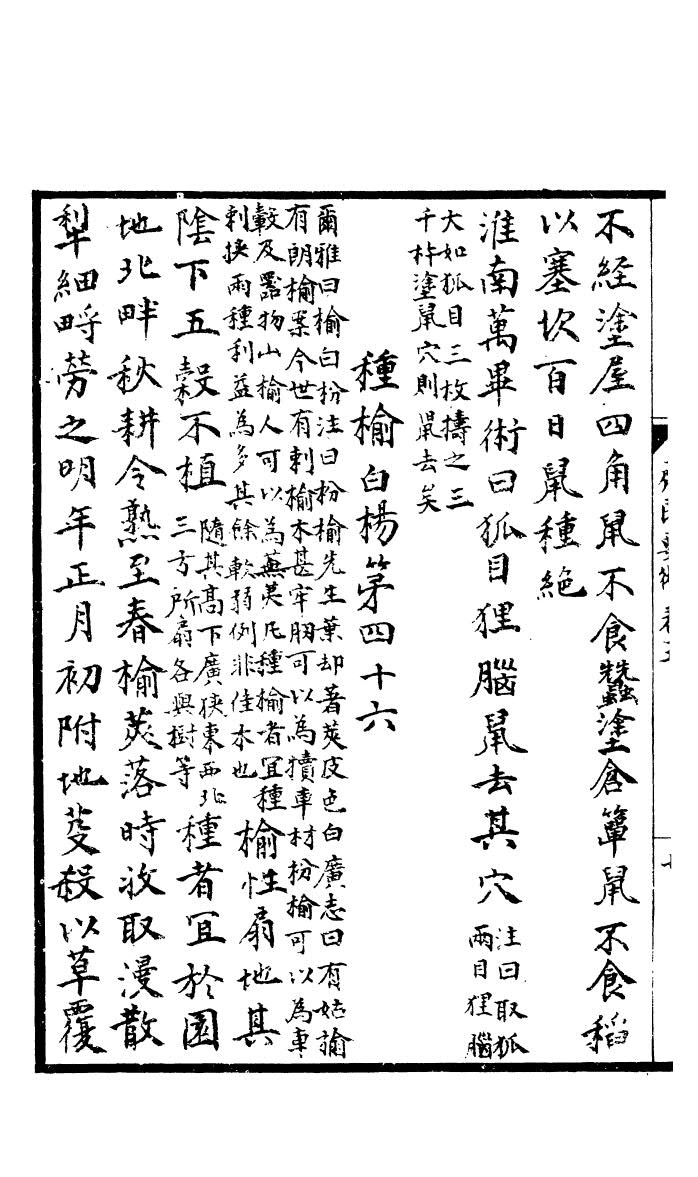 不經塗屋四角鼠不食蠶塗倉簞鼠不食稻
以塞坎百日鼠種絶
淮南萬畢術曰狐目狸腦鼠去其穴注曰取狐
兩目狸腦
大如狐目三枚擣之三
千杵塗鼠穴則鼠去矣
種榆白楊第四十六
爾雅曰榆白枌注曰枌榆先生葉却著莢皮色白廣志曰有姑諭
有朗榆案今世有刺榆木甚牢肕可以為犢車材枌榆可以為車
轂及器物山榆人可以為蕪荑凡種榆者宜種
剌挾兩種利益為多其餘軟弱例非佳木也榆性扇地其
陰下五穀不植隨其高下廣狹東西北
三方所扇各與樹等種者宜於園
地北畔秋耕令熟至春榆莢落時收取漫散
犁細㽟勞之明年正月初附地芟殺以草覆